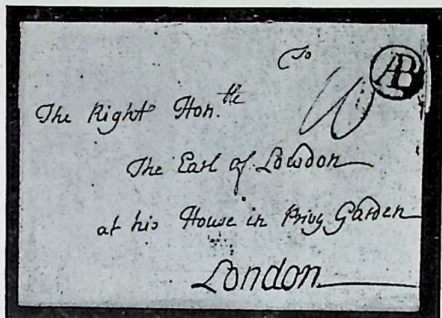 To
AB
The Right Hon.ble
The Earl of Lowdon
at his House in Privy Garden
London